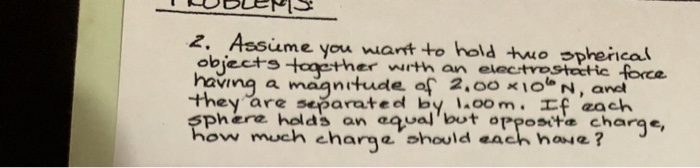 PROBLEMS:
2. Assume you want to hold two spherical
objects together with an electrostatic force
having a magnitude of 2.00 x10⁶ N, and
they are separated by 1.00m. If each
sphere holds an equal but opposite charge,
how much charge should each have?